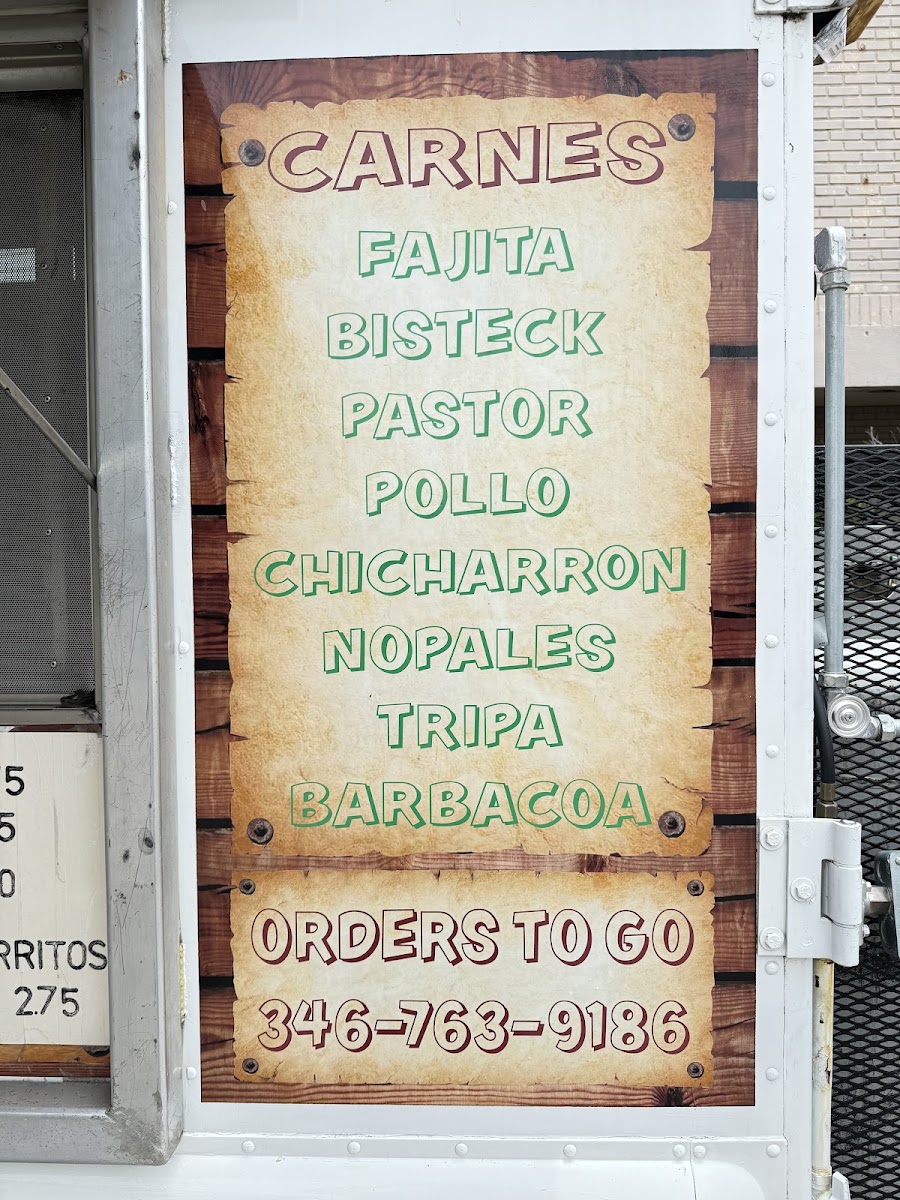 CARNES
FAJITA
BISTECK
PASTOR
POLLO
CHICHARRON
NOPALES
TRIPA
BARBACOA
ORDERS TO GO
346-763-9186
2.75